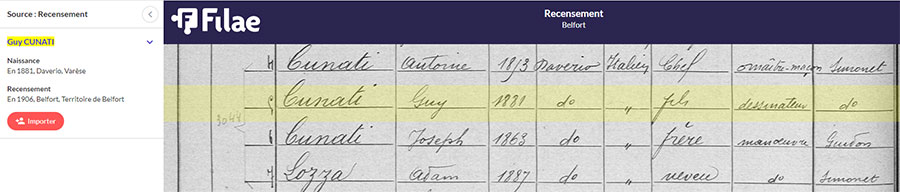 Source : Recensement
Guy CUNATI
Naissance
En 1881, Daverio, Varèse
Recensement
En 1906, Belfort, Territoire de Belfort
Importer
Filae
Recensement
Belfort
4 Cunati Antoine 1853 Daverio Italien Chef maître-maçon Simonet
5 Cunati Guy 1881 do " fils dessinateur do
3044
6 Cunati Joseph 1863 do " frère manoeuvre Guidon
7 Sozza Adam 1887 do " neveu do Simonet